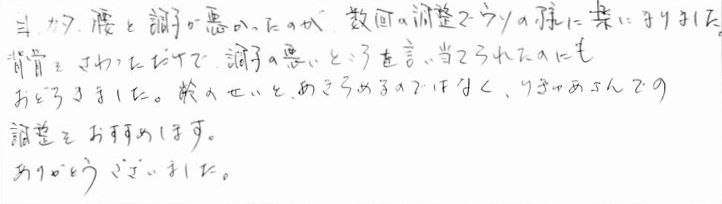 ヨ、カタ、腰と調子が悪かったのが、数回の調整でウソの様に楽になりました。
背骨をさわっただけで、調子の悪いところを言い当てられたのにも
おどろきました。齢のせいと、あきらめるのではなく、りきゅあさんでの
調整をおすすめします。
ありがとうございました。